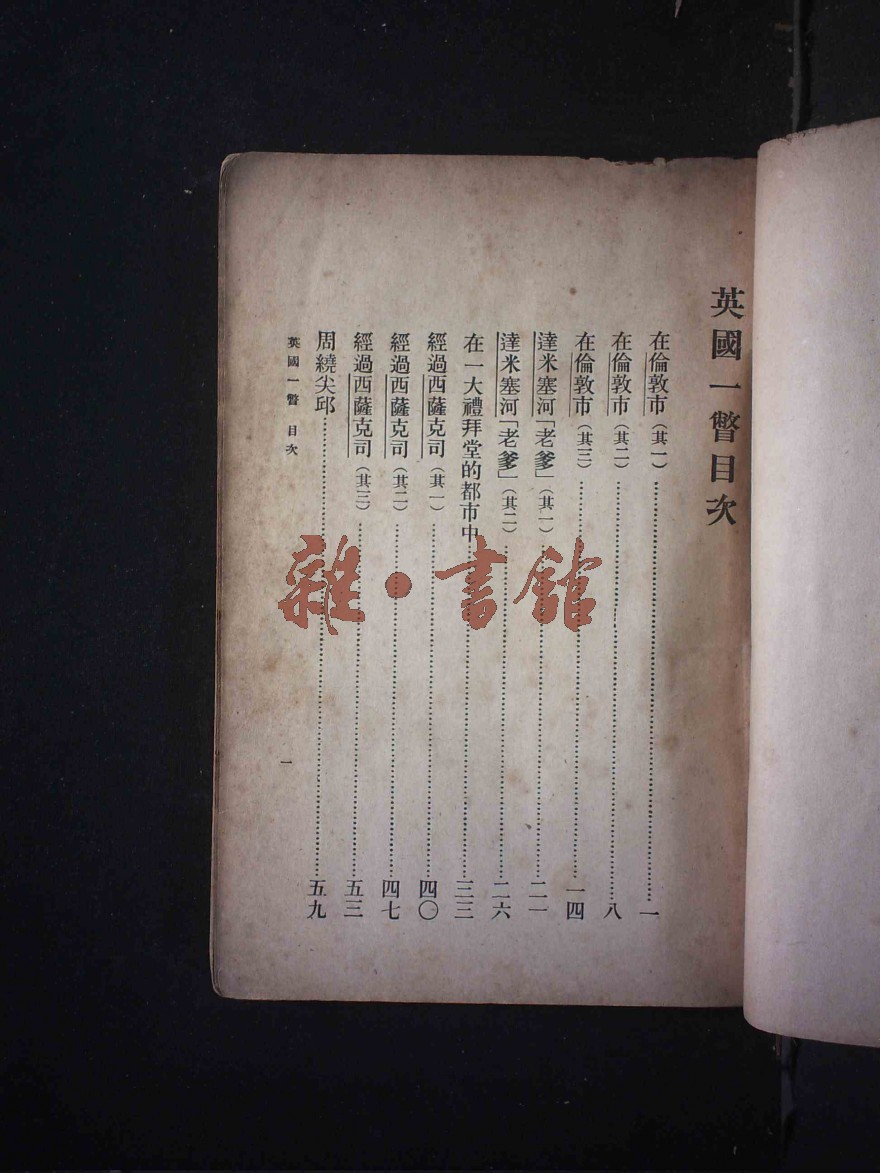 英國一瞥目次
在倫敦市(其一)……一
在倫敦市(其二)……八
在倫敦市(其三)……一四
達米塞河「老爹」(其一)……二一
達米塞河「老爹」(其二)……二六
在一大禮拜堂的都市中……三三
經過西薩克司(其一)……四〇
經過西薩克司(其二)……四七
經過西薩克司(其三)……五三
周繞尖邱……五九
英國一瞥 目次
一
雜·書館